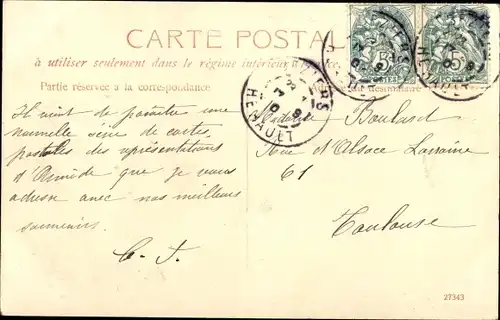 CARTE POSTALE
à utiliser seulement dans le régime intérieur
Partie réservée à la correspondance
Il vient de paraître une
nouvelle série de cartes
postales des représentations
d'Armide que je vous
adresse avec nos meilleurs
souvenirs
C. J.
Madame Boulard
Rue d'Alsace Lorraine
61
Toulouse
HERAULT
27343